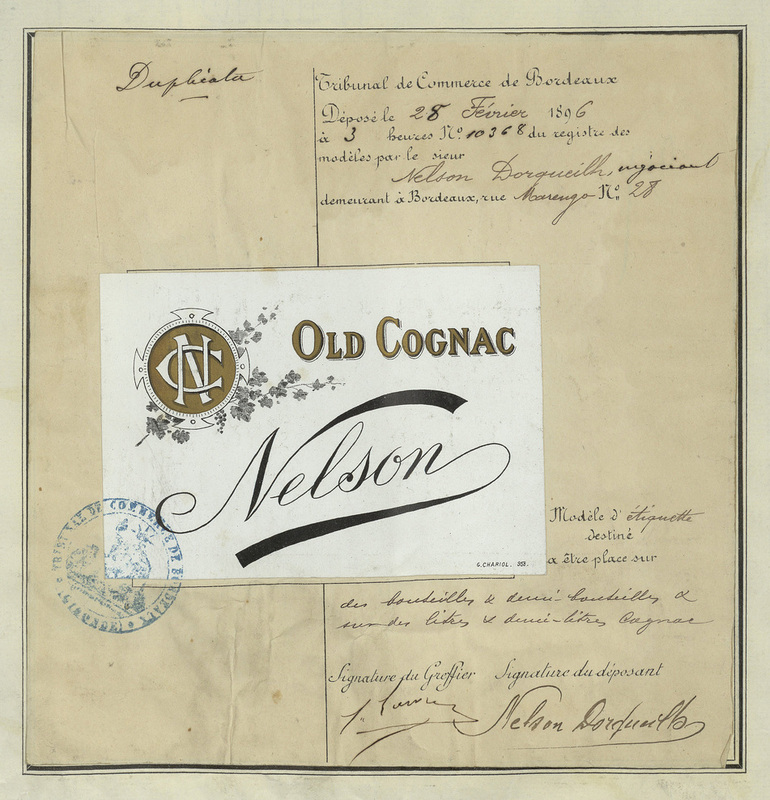 Duplicata
Tribunal de Commerce de Bordeaux
Déposé le 28 Février 1896
à 3 heures Nº 10368 du registre des
modèles par le sieur
Nelson Dorqueilh, négociant
demeurant à Bordeaux, rue Marengo Nº 28
NC
OLD COGNAC
Nelson
G. CHARIOL.
TRIBUNAL DE COMMERCE DE BORDEAUX
(GIRONDE)
Modèle d'étiquette
destiné
a être place sur
des bouteilles & demi-bouteilles &
sur des litres & demi-litres Cognac
Signature du Greffier Signature du déposant
Nelson Dorqueilh